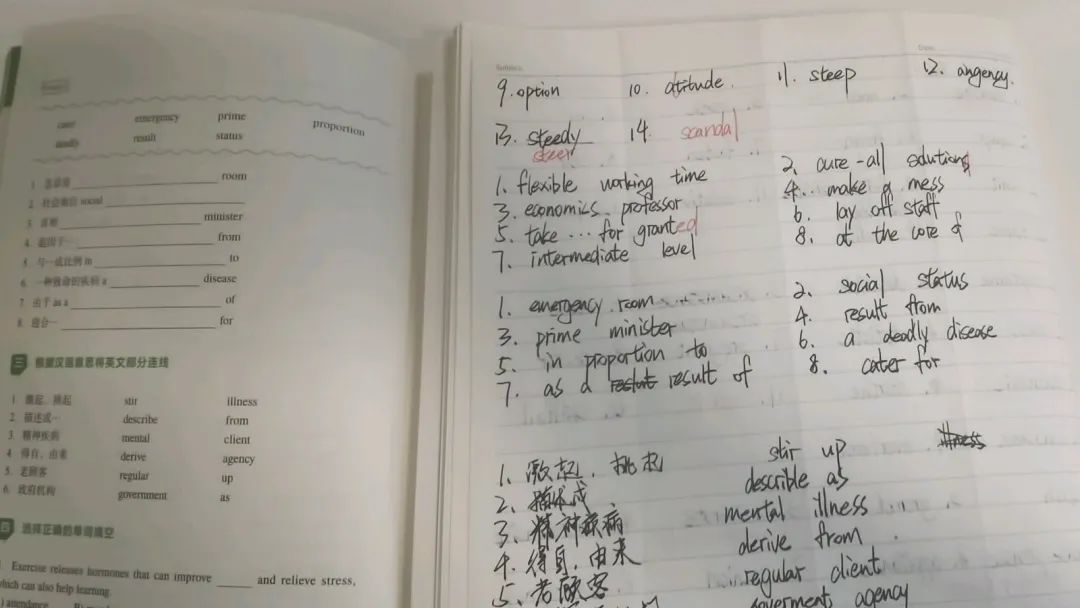 cater emergency prime proportion
deadly result status
1. 急诊室 room
2. 社会地位 social
3. 首相 minister
4. 起因于… from
5. 与…成比例 in to
6. 一种致命的疾病 a disease
7. 由于 as a of
8. 迎合… for
三 根据汉语意思将英文部分连线
1. 激起，挑起 stir illness
2. 描述成… describe from
3. 精神疾病 mental client
4. 得自，由来 derive agency
5. 老顾客 regular up
6. 政府机构 government as
四 选择正确的单词填空
1. Exercise releases hormones that can improve ____ and relieve stress,
which can also help learning.
) attendance
9. option 10. attitude. 11. steep 12. angency.
13. steedy 14. scandal
steer
1. flexible working time 2. cure-all solutions
3. economics professor 4. make a mess
5. take … for granted 6. lay off staff
7. intermediate level 8. at the core of
1. emergency room 2. social status
3. prime minister 4. result from
5. in proportion to 6. a deadly disease
7. as a result of 8. cater for
1. 激起，挑起 stir up illness
2. 描述成 describle as
3. 精神疾病 mental illness
4. 得自，由来 derive from
5. 老顾客 regular client
goverment agency